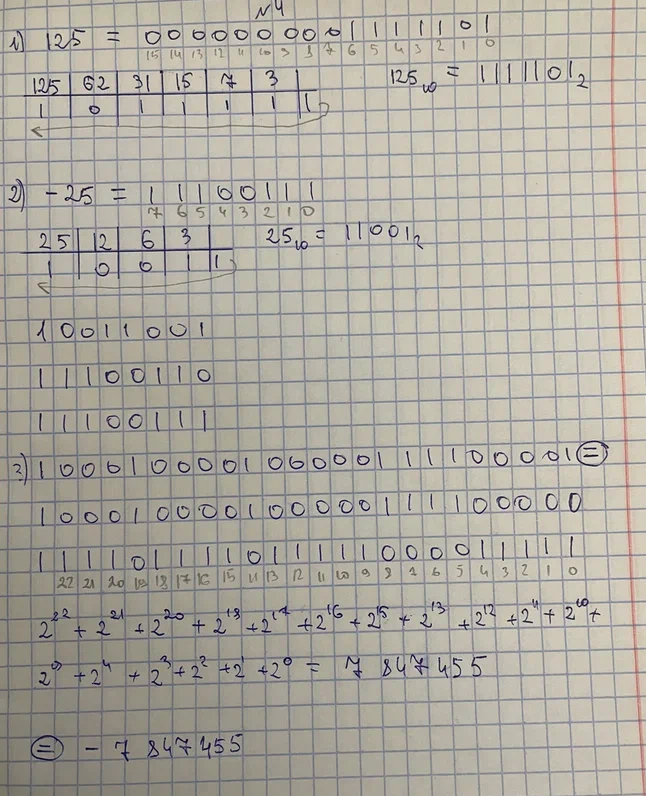 №4
1) 125 = 0000000001111101
15 14 13 12 11 10 9 8 7 6 5 4 3 2 1 0
125 62 31 15 7 3 125₁₀ = 1111101₂
1 0 1 1 1 1 1
2) -25 = 11100111
7 6 5 4 3 2 1 0
25 12 6 3 25₁₀ = 11001₂
1 0 0 1 1
10011001
11100110
11100111
3) 100010000100000111100001 =
100010000100000111100000
111101111011111000011111
22 21 20 19 18 17 16 15 14 13 12 11 10 9 8 7 6 5 4 3 2 1 0
2²² + 2²¹ + 2²⁰ + 2¹⁸ + 2¹⁷ + 2¹⁶ + 2¹⁵ + 2¹³ + 2¹² + 2¹¹ + 2¹⁰ +
2⁹ + 2⁴ + 2³ + 2² + 2¹ + 2⁰ = 7 847 455
= - 7 847 455